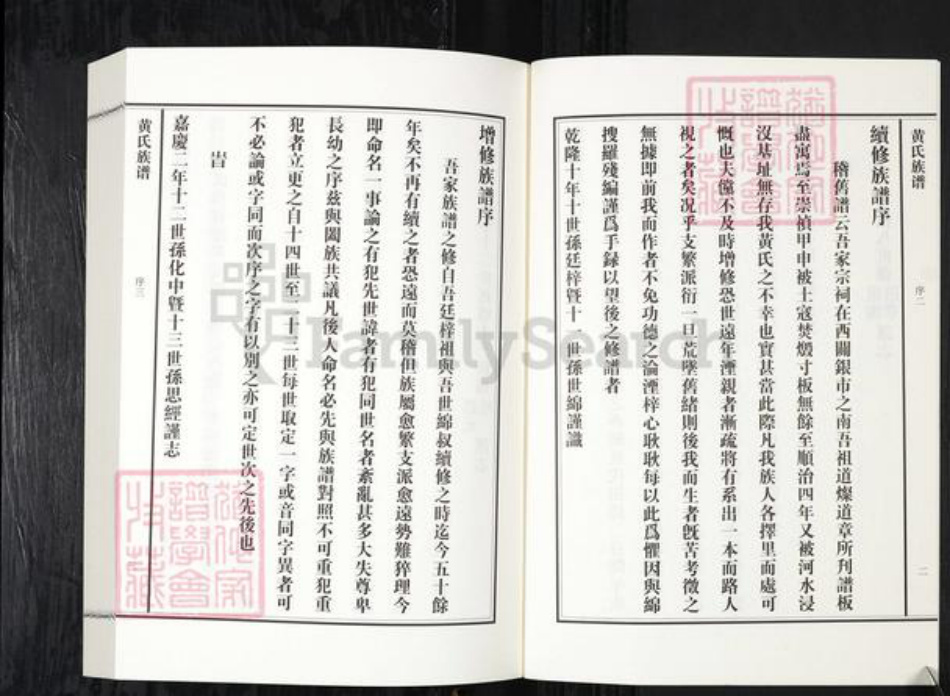 黄氏族谱
序二
二
續修族譜序
稽舊譜云吾家宗祠在西關銀市之南吾祖道燦道章所刋譜板
盡寓焉至崇禎甲申被土寇焚燬寸板無餘至順治四年又被河水浸
沒基址無存我黃氏之不幸也實甚當此際凡我族人各擇里而處可
慨也夫儻不及時增修恐世遠年湮親者漸疏將有系出一本而路人
視之者矣況乎支繁派衍一旦荒墜舊緒則後我而生者旣苦考徵之
無據即前我而作者不免功德之論湮梓心耿耿每以此爲懼因與綿
搜羅殘編謹爲手録以望後之修譜者
乾隆十年十世孫廷梓暨十一世孫世綿謹識
增修族譜序
吾家族譜之修自吾廷梓祖與吾世綿叔續修之時迄今五十餘
年矣不再有續之者恐遠而莫稽但族屬愈繁支派愈遠勢難猝理今
即命名一事論之有犯先世諱者有犯同世名者紊亂甚多大失尊卑
長幼之序茲與闔族共議凡後人命名必先與族譜對照不可重犯重
犯者立更之自十四世至二十三世每世取定一字或音同字異者可
不必論或字同而次序之字有以別之亦可定世次之先後也
旹
嘉慶二年十二世孫化中暨十三世孫思經謹志
黄氏族谱
序三
FamilySearch